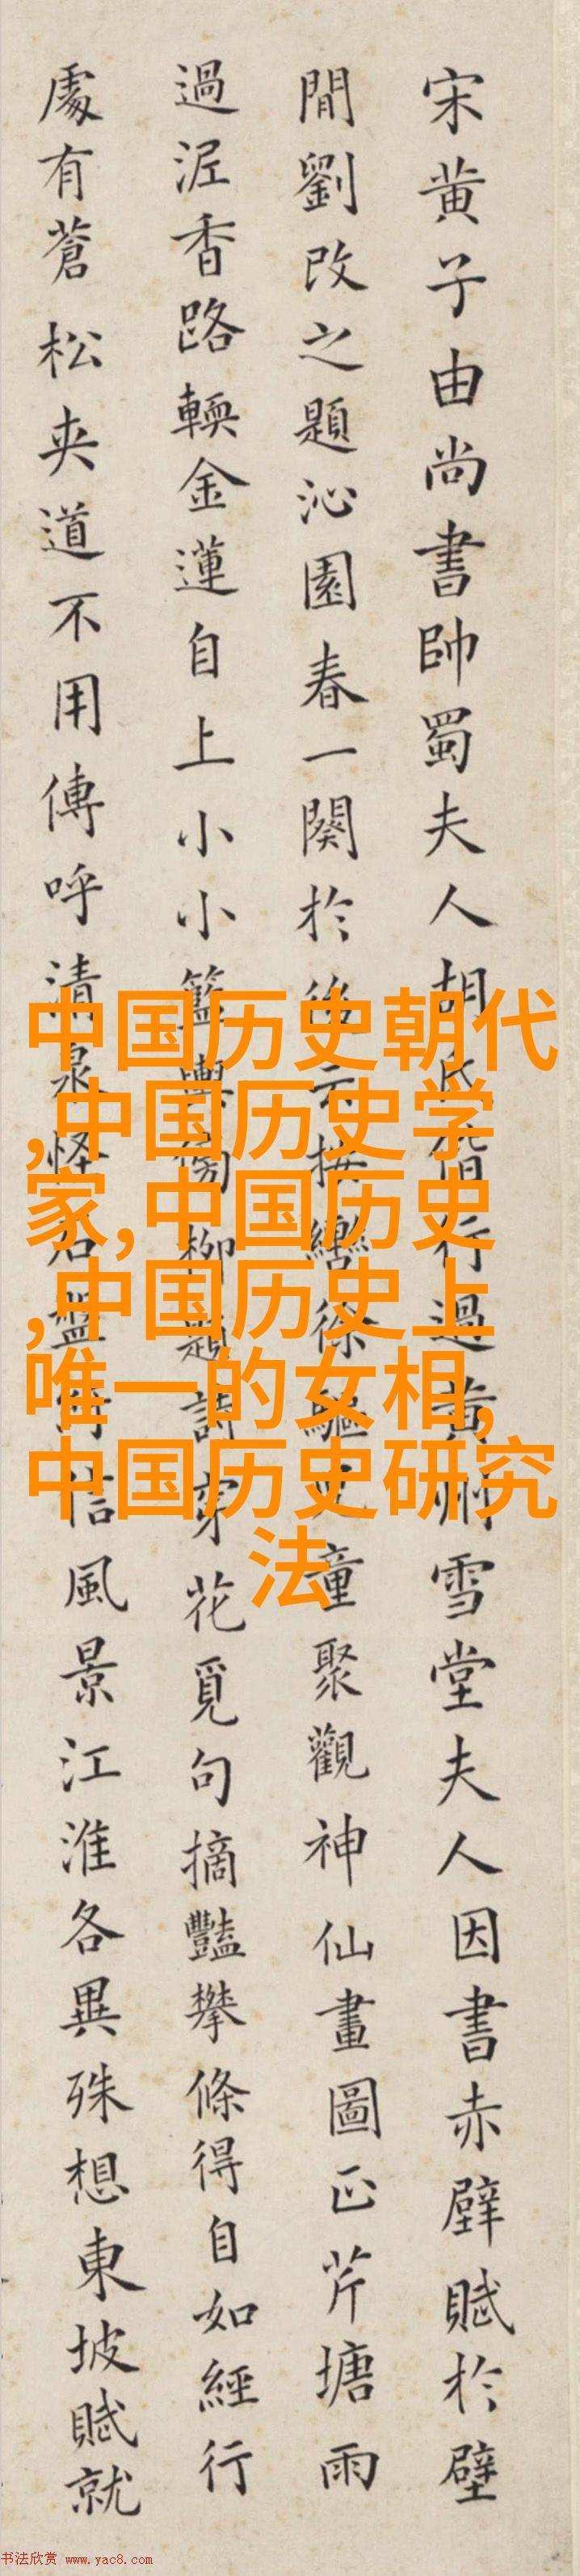 宋黄子由尚書帥蜀夫人胡氏偕行過黄州雪堂夫人因書赤壁賦於壁
間劉改之題沁園春一闋於後云按轡徐驅兒童聚觀神仙畫圖正芹塘雨
過泥香路輭金蓮自上小小籃輿傍柳題詩穿花覓句摘豔攀條得自如經行
處有蒼松夾道不用傳呼清泉怪石盤信風景江淮各異殊想東坡賦就
中国历史朝代
,中国历史学
家,中国历史
,中国历史上
唯一的女相,
中国历史研究
法
书法欣赏 www.yac8.com